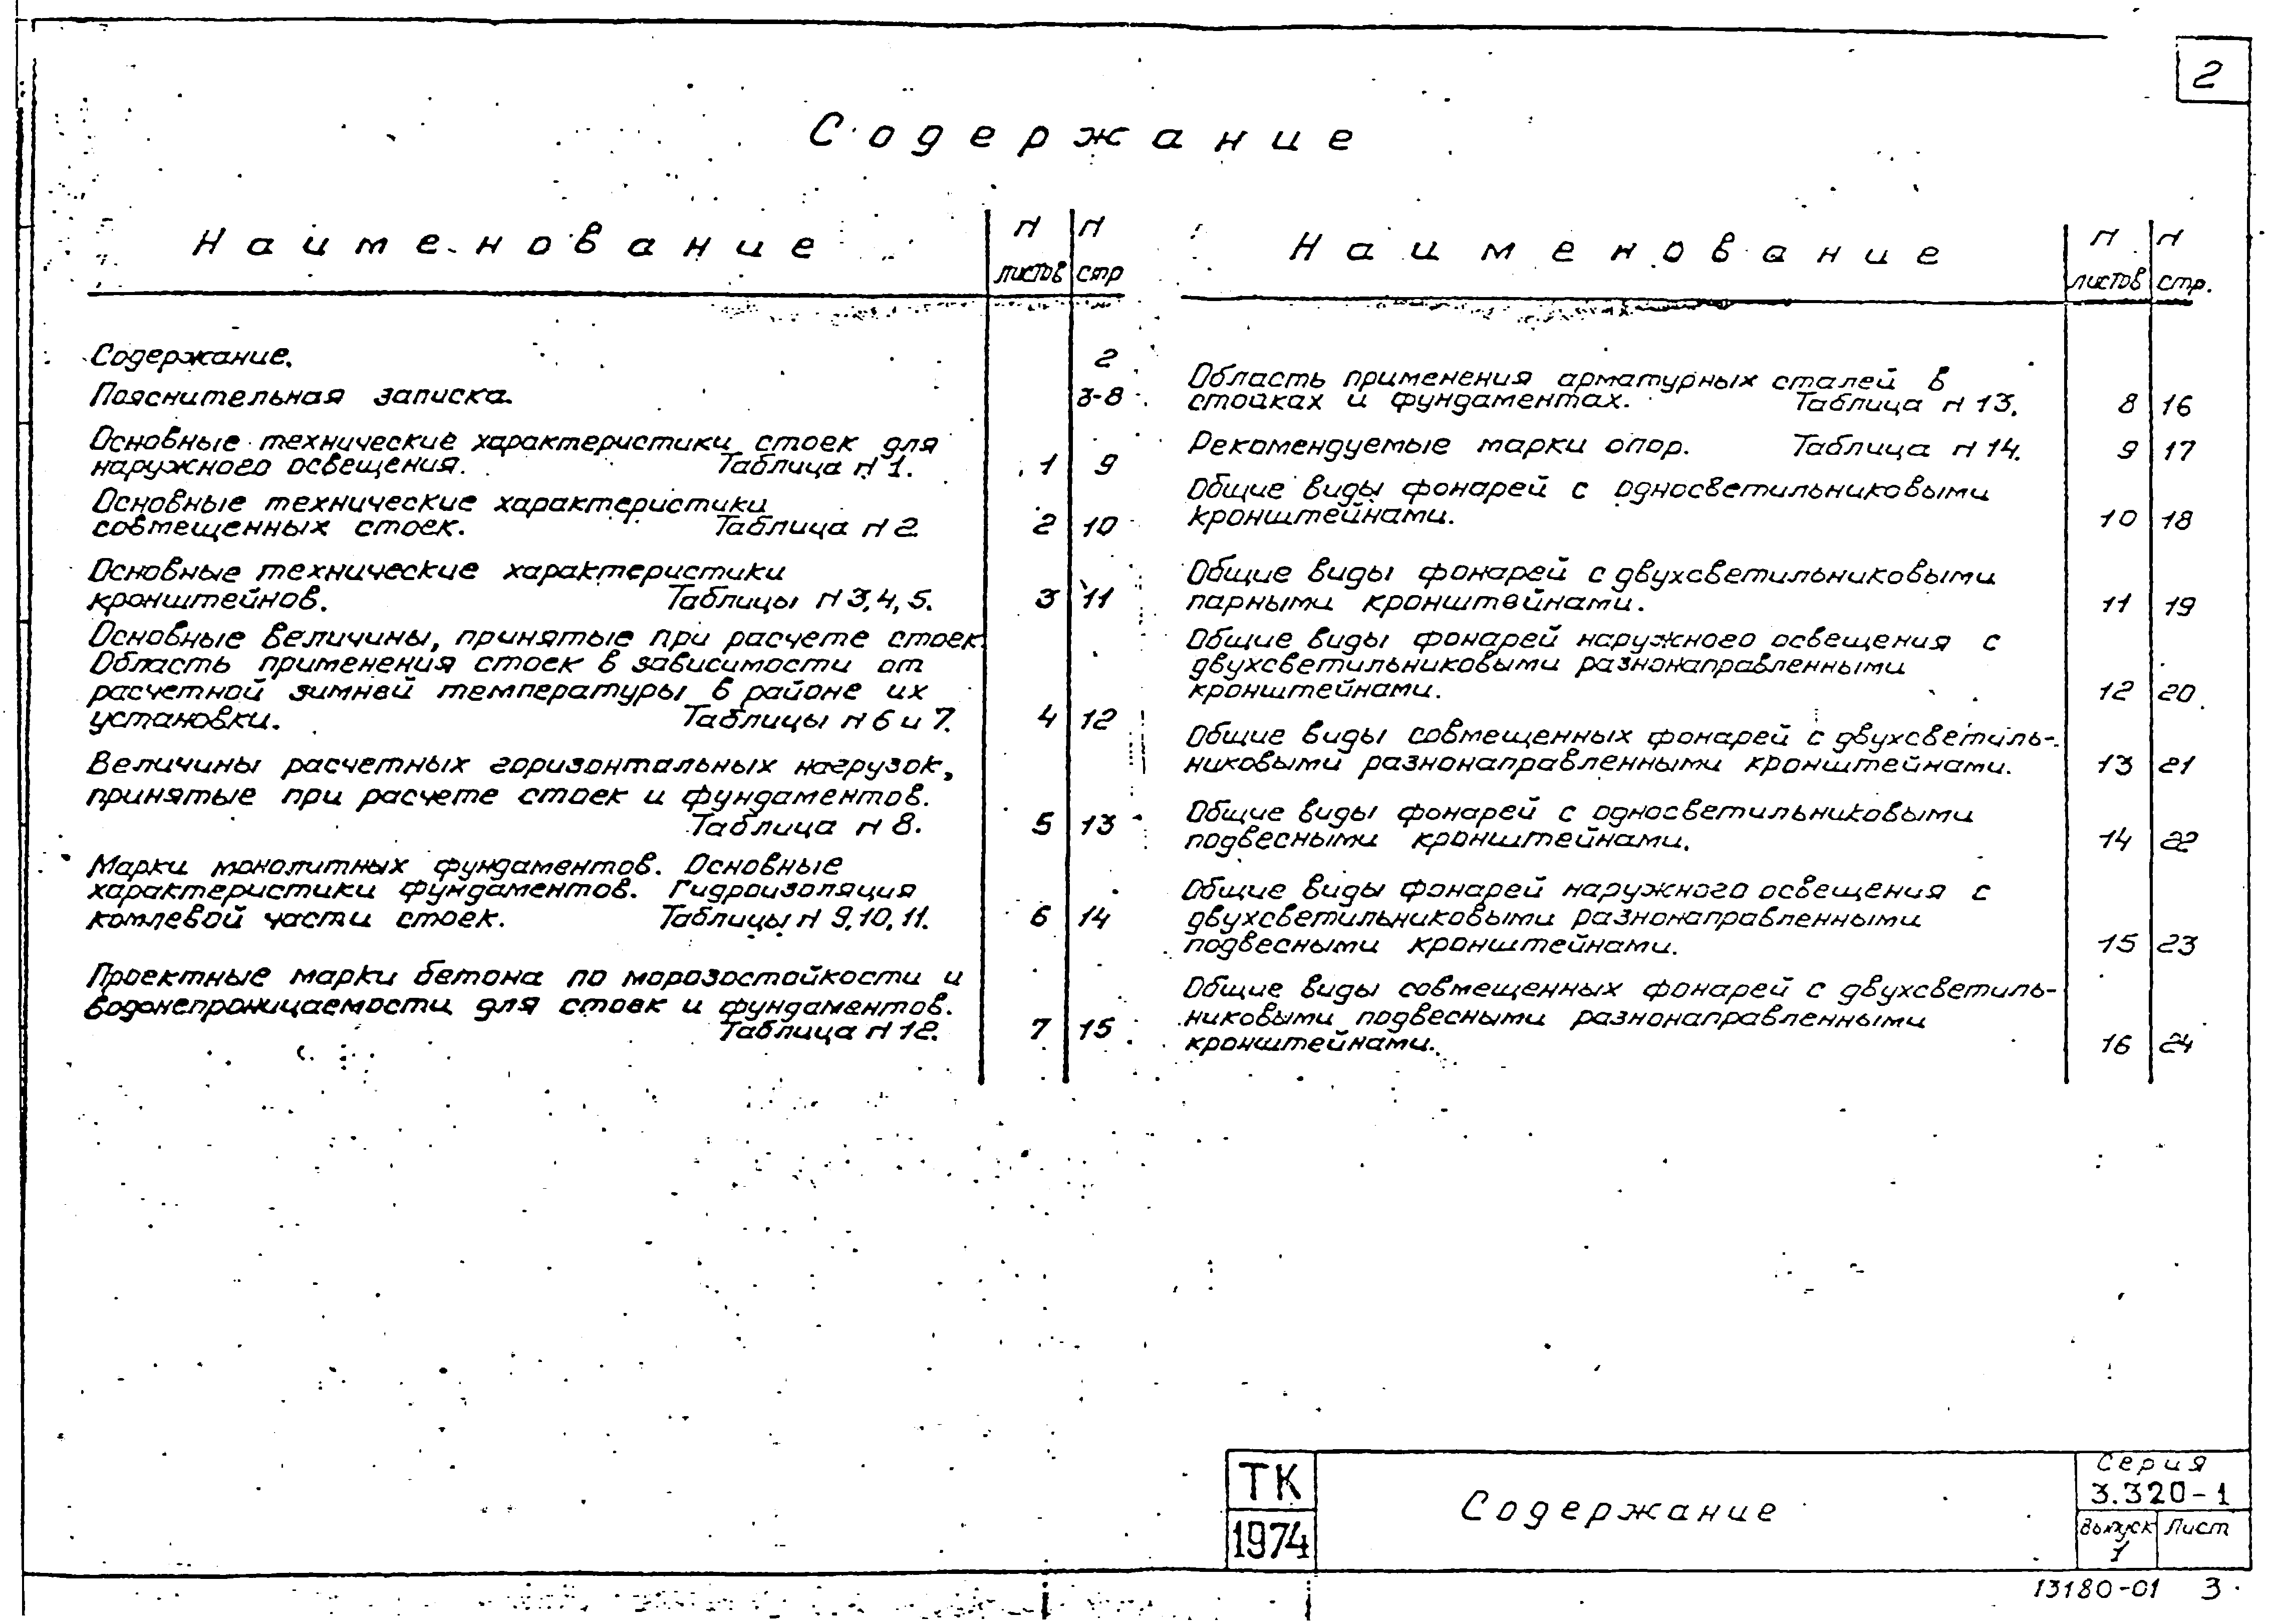 2
Содержание
Наименование
N листов
N стр
Содержание. 2
Пояснительная записка. 3-8
Основные технические характеристики стоек для
наружного освещения. Таблица N 1. 1 9
Основные технические характеристики
совмещенных стоек. Таблица N 2. 2 10
Основные технические характеристики
кронштейнов. Таблицы N 3, 4, 5. 3 11
Основные величины, принятые при расчете стоек.
Область применения стоек в зависимости от
расчетной зимней температуры в районе их
установки. Таблицы N 6 и 7. 4 12
Величины расчетных горизонтальных нагрузок,
принятые при расчете стоек и фундаментов.
Таблица N 8. 5 13
Марки монолитных фундаментов. Основные
характеристики фундаментов. Гидроизоляция
комлевой части стоек. Таблицы N 9, 10, 11. 6 14
Проектные марки бетона по морозостойкости и
водонепроницаемости для стоек и фундаментов.
Таблица N 12. 7 15
Наименование
N листов
N стр.
Область применения арматурных сталей в
стойках и фундаментах. Таблица N 13. 8 16
Рекомендуемые марки опор. Таблица N 14. 9 17
Общие виды фонарей с односветильниковыми
кронштейнами. 10 18
Общие виды фонарей с двухсветильниковыми
парными кронштейнами. 11 19
Общие виды фонарей наружного освещения с
двухсветильниковыми разнонаправленными
кронштейнами. 12 20
Общие виды совмещенных фонарей с двухсветиль-
никовыми разнонаправленными кронштейнами. 13 21
Общие виды фонарей с односветильниковыми
подвесными кронштейнами. 14 22
Общие виды фонарей наружного освещения с
двухсветильниковыми разнонаправленными
подвесными кронштейнами. 15 23
Общие виды совмещенных фонарей с двухсветиль-
никовыми подвесными разнонаправленными
кронштейнами. 16 24
ТК
1974
Содержание
Серия
3.320-1
Выпуск
1
Лист
13180-01 3